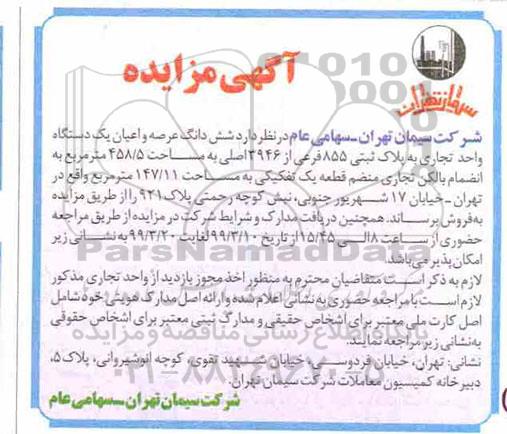 آگهی مزایده
سیمان تهران
شرکت سیمان تهران ـ سهامی عام در نظر دارد شش دانگ عرصه و اعیان یک دستگاه
واحد تجاری به پلاک ثبتی ۸۵۵ فرعی از ۳۹۴۶ اصلی به مساحت ۴۵۸/۵ مترمربع به
انضمام بالکن تجاری منضم قطعه یک تفکیکی به مساحت ۱۴۷/۱۱ مترمربع واقع در
تهران ـ خیابان ۱۷ شهریور جنوبی، نبش کوچه رحمتی پلاک ۹۲۱ را از طریق مزایده
به‌فروش برساند. همچنین دریافت مدارک و شرایط شرکت در مزایده از طریق مراجعه
حضوری از ساعت ۸ الی ۱۵/۴۵ از تاریخ ۹۹/۳/۱۰ لغایت ۹۹/۳/۲۰ به نشانی زیر
امکان پذیر می‌باشد.
لازم به ذکر است متقاضیان محترم به منظور اخذ مجوز بازدید از واحد تجاری مذکور
لازم است با مراجعه حضوری به نشانی اعلام شده و ارائه اصل مدارک هویتی خود شامل
اصل کارت ملی معتبر برای اشخاص حقیقی و مدارک ثبتی معتبر برای اشخاص حقوقی
به نشانی زیر مراجعه نمایند.
نشانی: تهران، خیابان فردوسی، خیابان شهید تقوی، کوچه انوشیروانی، پلاک ۵،
دبیرخانه کمیسیون معاملات شرکت سیمان تهران.
شرکت سیمان تهران ـ سهامی عام
ParsNamadData
پایگاه اطلاع رسانی مناقصه و مزایده
۰۲۱-۸۸۳۴۹۶۷۰-۵